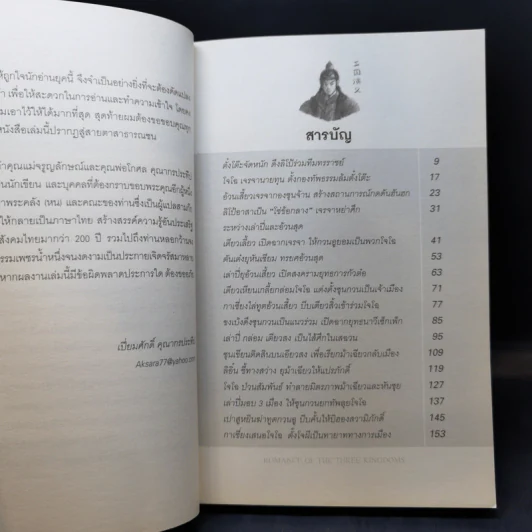 ให้ถูกใจนักอ่านยุคนี้ จึงจำเป็นอย่างยิ่งที่จะต้องดัดแปลง
เพื่อให้สะดวกในการอ่านและทำความเข้าใจ
เอาไว้ให้ได้มากที่สุด สุดท้ายผมต้องขอขอบคุณทุก
หนังสือเล่มนี้ปรากฏสู่สายตาสาธารณชน
คุณแม่จรูญลักษณ์และคุณพ่อโกศล คุณากรประทีป
นักเขียน และบุคคลที่ต้องกราบขอบพระคุณอีกผู้หนึ่ง
พระคลัง (หน) และคณะของท่านซึ่งเป็นผู้แปล
ให้กลายเป็นภาษาไทย สร้างสรรค์ความรู้อันประเสริฐ
สังคมไทยมากว่า 200 ปี รวมไปถึงท่านหลอกว้านจง
ธรรมเพชรน้ำหนึ่งจนงดงามเป็นประกายเจิดจรัส
หากผลงานเล่มนี้มีข้อผิดพลาดประการใด ต้องขออภัย
เปี่ยมศักดิ์ คุณากรประทีป
Aksara77@yahoo.com
三国演义
สารบัญ
ตั๋งโต๊ะจัดหนัก ดึงลิโป้ร่วมทีมทรราชย์ 9
โจโฉ เจรจานายทุน ตั้งกองทัพธรรมล้มตั๋งโต๊ะ 17
อ้วนเสี้ยวเจรจากองซุนจ้าน สร้างสถานการณ์กดดันฮันฮก 23
ลิโป้อาสาเป็น "โซ่ข้อกลาง" เจรจาหย่าศึก 31
ระหว่างเล่าปี่และอ้วนสุด
เตียวเลี้ยว เปิดอกเจรจา ให้กวนอูยอมเป็นพวกโจโฉ 41
ตันเต๋งยุหันเซียม ทรยศอ้วนสุด 53
เล่าปี่ยุอ้วนเสี้ยว เปิดสงครามยุทธการกัวต๋อ 63
เตียวเหียนเกลี้ยกล่อมโจโฉ แต่งตั้งซุนกวนเป็นเจ้าเมือง 71
กาเซี่ยงไล่ทูตอ้วนเสี้ยว บีบเตียวสิ้วเข้าร่วมโจโฉ 77
ขงเบ้งดึงซุนกวนเป็นแนวร่วม เปิดฉากยุทธนาวีเซ็กเพ็ก 85
เล่าปี่ กล่อม เตียวสง เป็นไส้ศึกในเสฉวน 95
ซุนเขียนติดสินบนเอียวสง เพื่อเรียกม้าเฉียวกลับเมือง 109
ลิอิ๋น ชี้ทางสว่าง ยุม้าเฉียวให้แปรภักดิ์ 119
โจโฉ ป่วนสัมพันธ์ ทำลายมิตรภาพม้าเฉียวและหันซุย 127
เล่าปี่มอบ 3 เมือง ให้ซุนกวนยกทัพลุยโจโฉ 137
เปาสูหยินฆ่าทูตกวนอู บีบคั้นให้บิฮองสวามิภักดิ์ 145
กาเซี่ยงเสนอโจโฉ ตั้งโจผีเป็นทายาททางการเมือง 153
ROMANCE OF THE THREE KINGDOMS